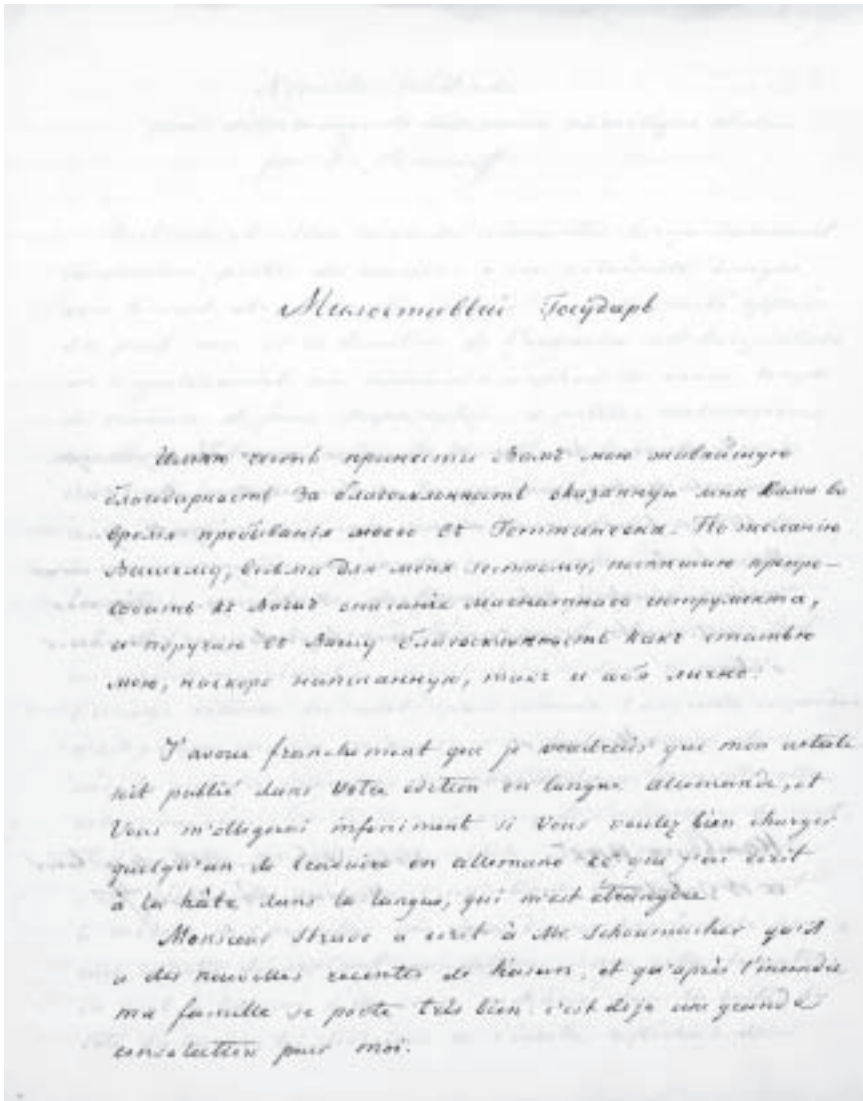 Милостивый Государь
Имѣю честь принести Вамъ мою живѣйшую
благодарность за благосклонность оказанную мнѣ Вами во
время пребыванія моего въ Геттингенѣ. По желанію
Вашему, весьма для меня лестному, поспѣшаю препро-
водить къ Вамъ описаніе магнитнаго инструмента,
и поручаю въ Вашу благосклонность какъ статью
мою, наскоро написанную, такъ и себя лично.
J'avoue franchement que je voudrais que mon article
soit publié dans Votre édition en langue allemande, et
Vous m'obligerai infiniment si Vous voulez bien charger
quelqu'un de traduire en allemand ce que j'ai écrit
à la hâte dans la langue, qui m'est étrangère.
Monsieur Struve a écrit à Mr. Schoumacher qu'il
a des nouvelles récentes de Kasan, et qu'après l'incendie
ma famille se porte très bien. c'est déjà une grande
consolation pour moi.